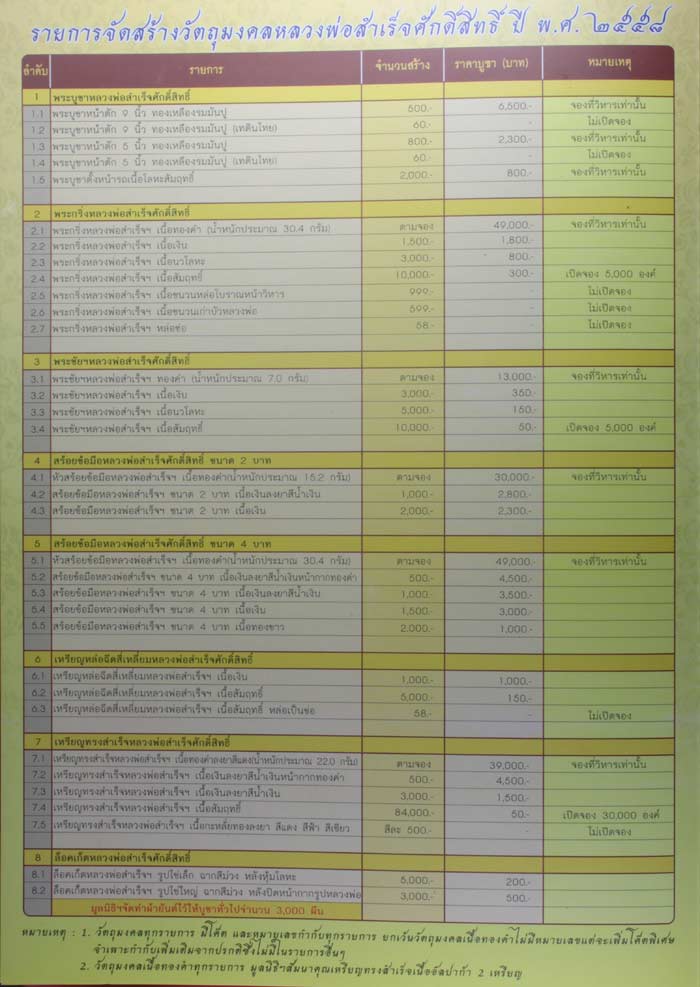 รายการจัดสร้างวัตถุมงคลหลวงพ่อสำเร็จศักดิ์สิทธิ์ ปี พ.ศ. ๒๕๕๘
ลำดับ รายการ จำนวนสร้าง ราคาบูชา (บาท) หมายเหตุ
1 พระบูชาหลวงพ่อสำเร็จศักดิ์สิทธิ์
1.1 พระบูชาหน้าตัก 9 นิ้ว ทองเหลืองรมมันปู 500.- 6,500.- จองที่วิหารเท่านั้น
1.2 พระบูชาหน้าตัก 9 นิ้ว ทองเหลืองรมมันปู (เทดินไทย) 60.- - ไม่เปิดจอง
1.3 พระบูชาหน้าตัก 5 นิ้ว ทองเหลืองรมมันปู 800.- 2,300.- จองที่วิหารเท่านั้น
1.4 พระบูชาหน้าตัก 5 นิ้ว ทองเหลืองรมมันปู (เทดินไทย) 60.- - ไม่เปิดจอง
1.5 พระบูชาตั้งหน้ารถเนื้อโลหะสัมฤทธิ์ 2,000.- 800.- จองที่วิหารเท่านั้น
2 พระกริ่งหลวงพ่อสำเร็จศักดิ์สิทธิ์
2.1 พระกริ่งหลวงพ่อสำเร็จฯ เนื้อทองคำ (น้ำหนักประมาณ 30.4 กรัม) ตามจอง 49,000.- จองที่วิหารเท่านั้น
2.2 พระกริ่งหลวงพ่อสำเร็จฯ เนื้อเงิน 1,500.- 1,800.-
2.3 พระกริ่งหลวงพ่อสำเร็จฯ เนื้อนวโลหะ 3,000.- 800.-
2.4 พระกริ่งหลวงพ่อสำเร็จฯ เนื้อสัมฤทธิ์ 10,000.- 300.- เปิดจอง 5,000 องค์
2.5 พระกริ่งหลวงพ่อสำเร็จฯ เนื้อชนวนหล่อโบราณหน้าวิหาร 999.- - ไม่เปิดจอง
2.6 พระกริ่งหลวงพ่อสำเร็จฯ เนื้อชนวนเก่าบัวหลวงพ่อ 599.- - ไม่เปิดจอง
2.7 พระกริ่งหลวงพ่อสำเร็จฯ หล่อช่อ 58.- - ไม่เปิดจอง
3 พระชัยฯหลวงพ่อสำเร็จศักดิ์สิทธิ์
3.1 พระชัยฯหลวงพ่อสำเร็จฯ ทองคำ (น้ำหนักประมาณ 7.0 กรัม) ตามจอง 13,000.- จองที่วิหารเท่านั้น
3.2 พระชัยฯหลวงพ่อสำเร็จฯ เนื้อเงิน 3,000.- 350.-
3.3 พระชัยฯหลวงพ่อสำเร็จฯ เนื้อนวโลหะ 5,000.- 150.-
3.4 พระชัยฯหลวงพ่อสำเร็จฯ เนื้อสัมฤทธิ์ 10,000.- 50.- เปิดจอง 5,000 องค์
4 สร้อยข้อมือหลวงพ่อสำเร็จศักดิ์สิทธิ์ ขนาด 2 บาท
4.1 หัวสร้อยข้อมือหลวงพ่อสำเร็จฯ เนื้อทองคำ(น้ำหนักประมาณ 15.2 กรัม) ตามจอง 30,000.- จองที่วิหารเท่านั้น
4.2 สร้อยข้อมือหลวงพ่อสำเร็จฯ ขนาด 2 บาท เนื้อเงินลงยาสีน้ำเงิน 1,000.- 2,800.-
4.3 สร้อยข้อมือหลวงพ่อสำเร็จฯ ขนาด 2 บาท เนื้อเงิน 2,000.- 2,300.-
5 สร้อยข้อมือหลวงพ่อสำเร็จศักดิ์สิทธิ์ ขนาด 4 บาท
5.1 หัวสร้อยข้อมือหลวงพ่อสำเร็จฯ เนื้อทองคำ(น้ำหนักประมาณ 30.4 กรัม) ตามจอง 49,000.- จองที่วิหารเท่านั้น
5.2 สร้อยข้อมือหลวงพ่อสำเร็จฯ ขนาด 4 บาท เนื้อเงินลงยาสีน้ำเงินหน้ากากทองคำ 500.- 4,500.-
5.3 สร้อยข้อมือหลวงพ่อสำเร็จฯ ขนาด 4 บาท เนื้อเงินลงยาสีน้ำเงิน 1,000.- 3,500.-
5.4 สร้อยข้อมือหลวงพ่อสำเร็จฯ ขนาด 4 บาท เนื้อเงิน 1,500.- 3,000.-
5.5 สร้อยข้อมือหลวงพ่อสำเร็จฯ ขนาด 4 บาท เนื้อทองขาว 2,000.- 1,000.-
6 เหรียญหล่อฉีดสี่เหลี่ยมหลวงพ่อสำเร็จศักดิ์สิทธิ์
6.1 เหรียญหล่อฉีดสี่เหลี่ยมหลวงพ่อสำเร็จฯ เนื้อเงิน 1,000.- 1,000.-
6.2 เหรียญหล่อฉีดสี่เหลี่ยมหลวงพ่อสำเร็จฯ เนื้อสัมฤทธิ์ 5,000.- 150.-
6.3 เหรียญหล่อฉีดสี่เหลี่ยมหลวงพ่อสำเร็จฯ เนื้อสัมฤทธิ์ หล่อเป็นช่อ 58.- - ไม่เปิดจอง
7 เหรียญทรงสำเร็จหลวงพ่อสำเร็จศักดิ์สิทธิ์
7.1 เหรียญทรงสำเร็จหลวงพ่อสำเร็จฯ เนื้อทองคำลงยาสีแดง(น้ำหนักประมาณ 22.0 กรัม) ตามจอง 39,000.- จองที่วิหารเท่านั้น
7.2 เหรียญทรงสำเร็จหลวงพ่อสำเร็จฯ เนื้อเงินลงยาสีน้ำเงินหน้ากากทองคำ 500.- 4,500.-
7.3 เหรียญทรงสำเร็จหลวงพ่อสำเร็จฯ เนื้อเงินลงยาสีน้ำเงิน 3,000.- 1,500.-
7.4 เหรียญทรงสำเร็จหลวงพ่อสำเร็จฯ เนื้อสัมฤทธิ์ 84,000.- 50.- เปิดจอง 30,000 องค์
7.5 เหรียญทรงสำเร็จหลวงพ่อสำเร็จฯ เนื้อกะหลั่ยทองลงยา สีแดง สีฟ้า สีเขียว สีละ 500.- - ไม่เปิดจอง
8 ล็อคเก็ตหลวงพ่อสำเร็จศักดิ์สิทธิ์
8.1 ล็อคเก็ตหลวงพ่อสำเร็จฯ รูปไข่เล็ก ฉากสีม่วง หลังหุ้มโลหะ 5,000.- 200.-
8.2 ล็อคเก็ตหลวงพ่อสำเร็จฯ รูปไข่ใหญ่ ฉากสีม่วง หลังปิดหน้ากากรูปหลวงพ่อ 3,000.- 500.-
มูลนิธิฯจัดทำผ้ายันต์ไว้ให้บูชาทั่วไปจำนวน 3,000 ผืน
หมายเหตุ : 1. วัตถุมงคลทุกรายการ มีโค๊ต และหมายเลขกำกับทุกรายการ ยกเว้นวัตถุมงคลเนื้อทองคำไม่มีหมายเลขแต่จะเพิ่มโค๊ตพิเศษ
จำเพาะกำกับเพิ่มเติมจากปรกติซึ่งไม่มีในรายการอื่นๆ
2. วัตถุมงคลเนื้อทองคำทุกรายการ มูลนิธิฯสัมนาคุณเหรียญทรงสำเร็จเนื้ออัลปาก้า 2 เหรียญ